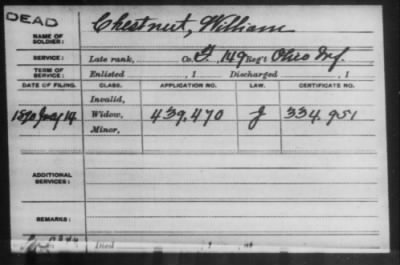 DEAD
NAME OF SOLDIER: Chestnut, William
SERVICE: Late rank, Co. G, 149 Reg't Ohio Inf.
TERM OF SERVICE: Enlisted , 1 Discharged , 1
DATE OF FILING. CLASS. APPLICATION NO. LAW. CERTIFICATE NO.
Invalid,
1890 July 14 Widow, 439,470 J 334,951
Minor,
ADDITIONAL SERVICES:
REMARKS:
Died , 1 , at